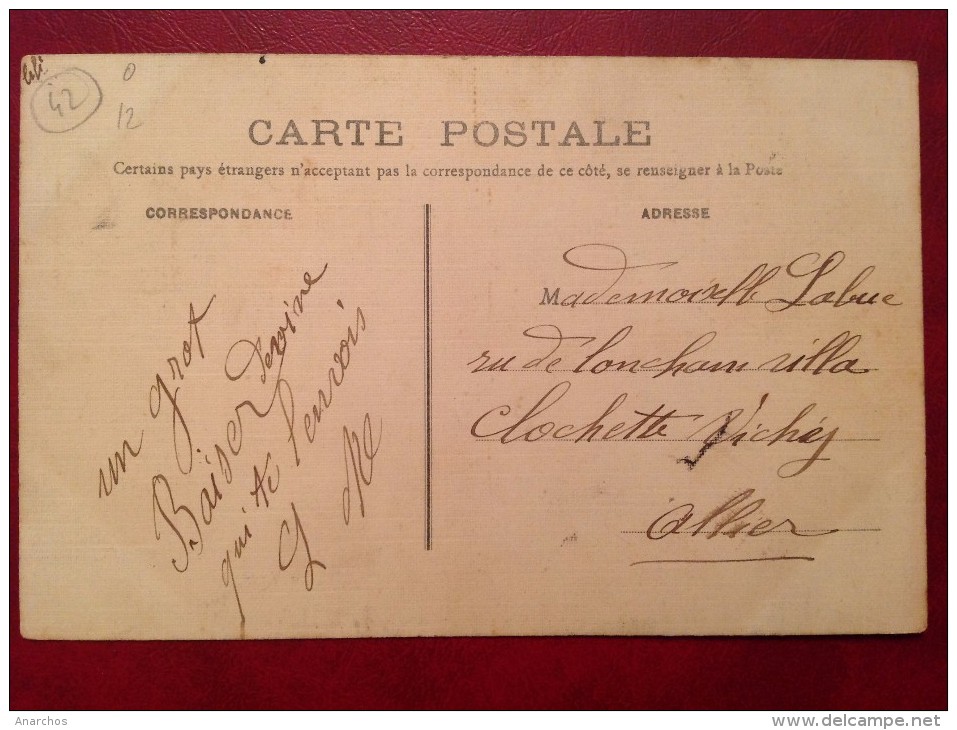 bébé
42
0
12
CARTE POSTALE
Certains pays étrangers n'acceptant pas la correspondance de ce côté, se renseigner à la Poste
CORRESPONDANCE
un grot
Baiser Devine
qui te lenvois
ADRESSE
Mademoiselle Labue
ru de loncham villa
Clochette Vichy
Allier
Anarchos
www.delcampe.net